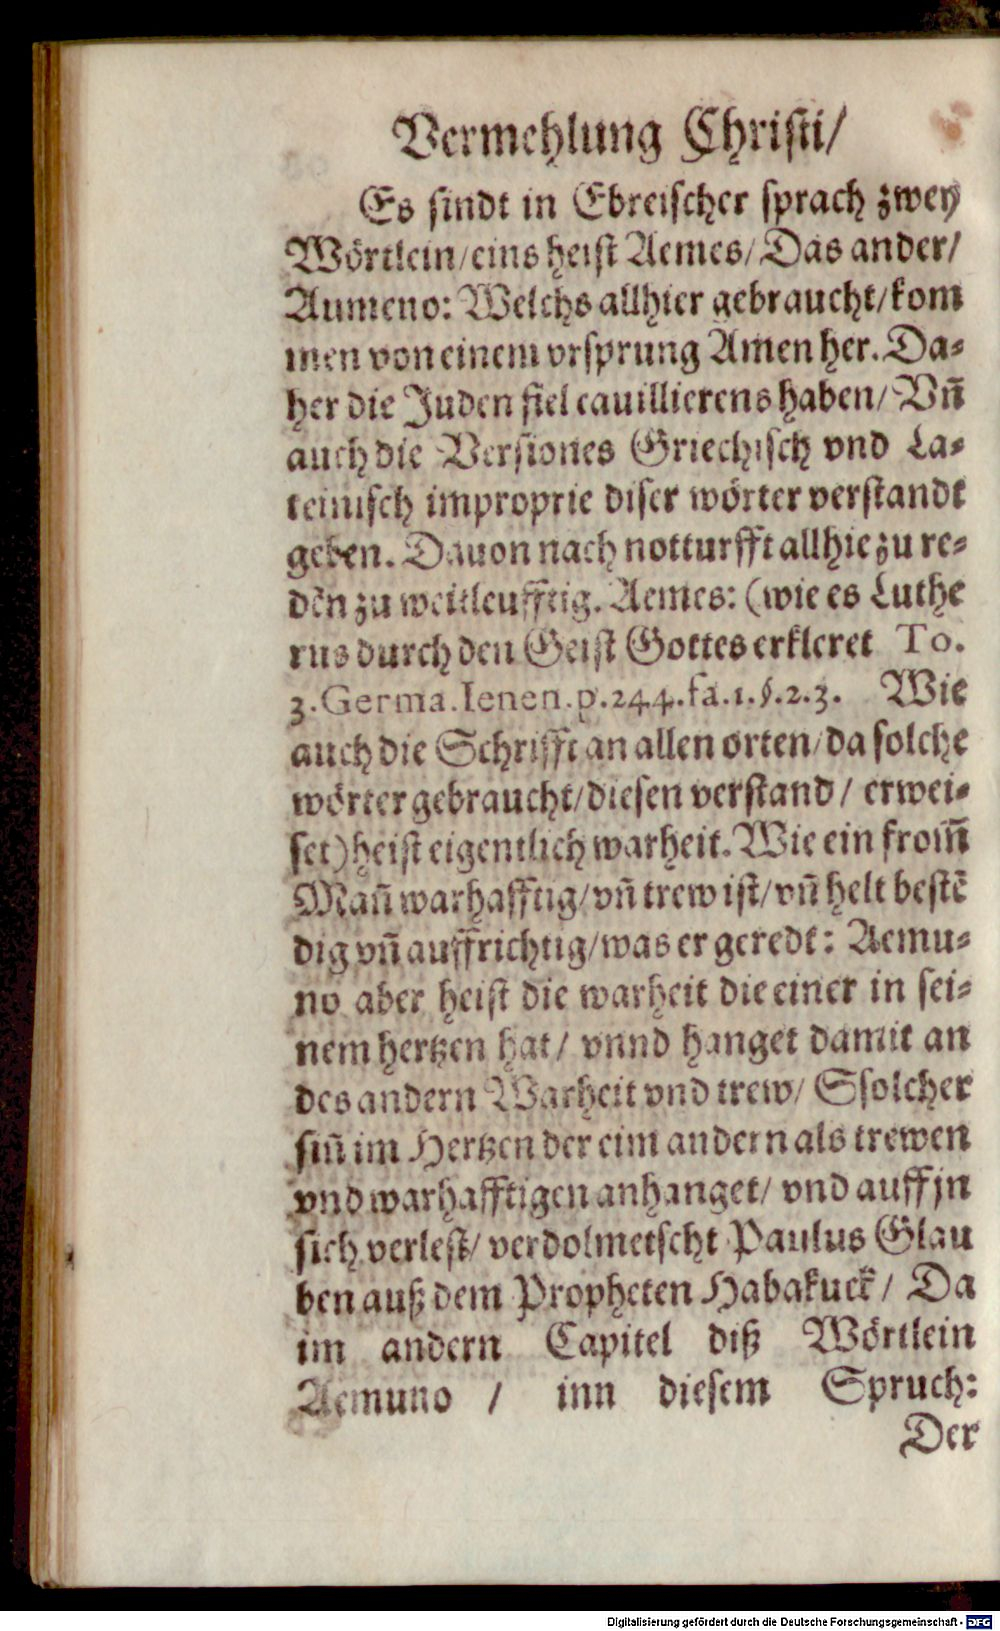 Vermehlung Christi/
Es sindt in Ebreischer sprach zwey
Wörtlein/eins heist Aemes/Das ander/
Aumeno: Welchs allhier gebraucht/kom
men von einem vrsprung Amen her. Da-
her die Juden fiel cauillierens haben/Vñ
auch die Versiones Griechisch vnd La-
teinisch improprie diser wörter verstandt
geben. Dauon nach notturfft allhie zu re-
den zu weitleufftig. Aemes: (wie es Luthe
rus durch den Geist Gottes erkleret To.
3. Germa. Ienen. p. 244. fa. 1. §. 2. 3. Wie
auch die Schrifft an allen orten/da solche
wörter gebraucht/diesen verstand/ erwei-
set) heist eigentlich warheit. Wie ein from̃
Mañ warhafftig/vñ trew ist/vñ helt bestē
dig vñ auffrichtig/was er geredt: Aemu-
no aber heist die warheit die einer in sei-
nem hertzen hat/ vnnd hanget damit an
des andern Warheit vnd trew/ Ssolcher
siñ im Hertzen der eim andern als trewen
vnd warhafftigen anhanget/ vnd auff jn
sich verlest/ verdolmetscht Paulus Glau
ben auß dem Propheten Habakuck/ Da
im andern Capitel diß Wörtlein
Aemuno / inn diesem Spruch:
Der
Digitalisierung gefördert durch die Deutsche Forschungsgemeinschaft - DFG